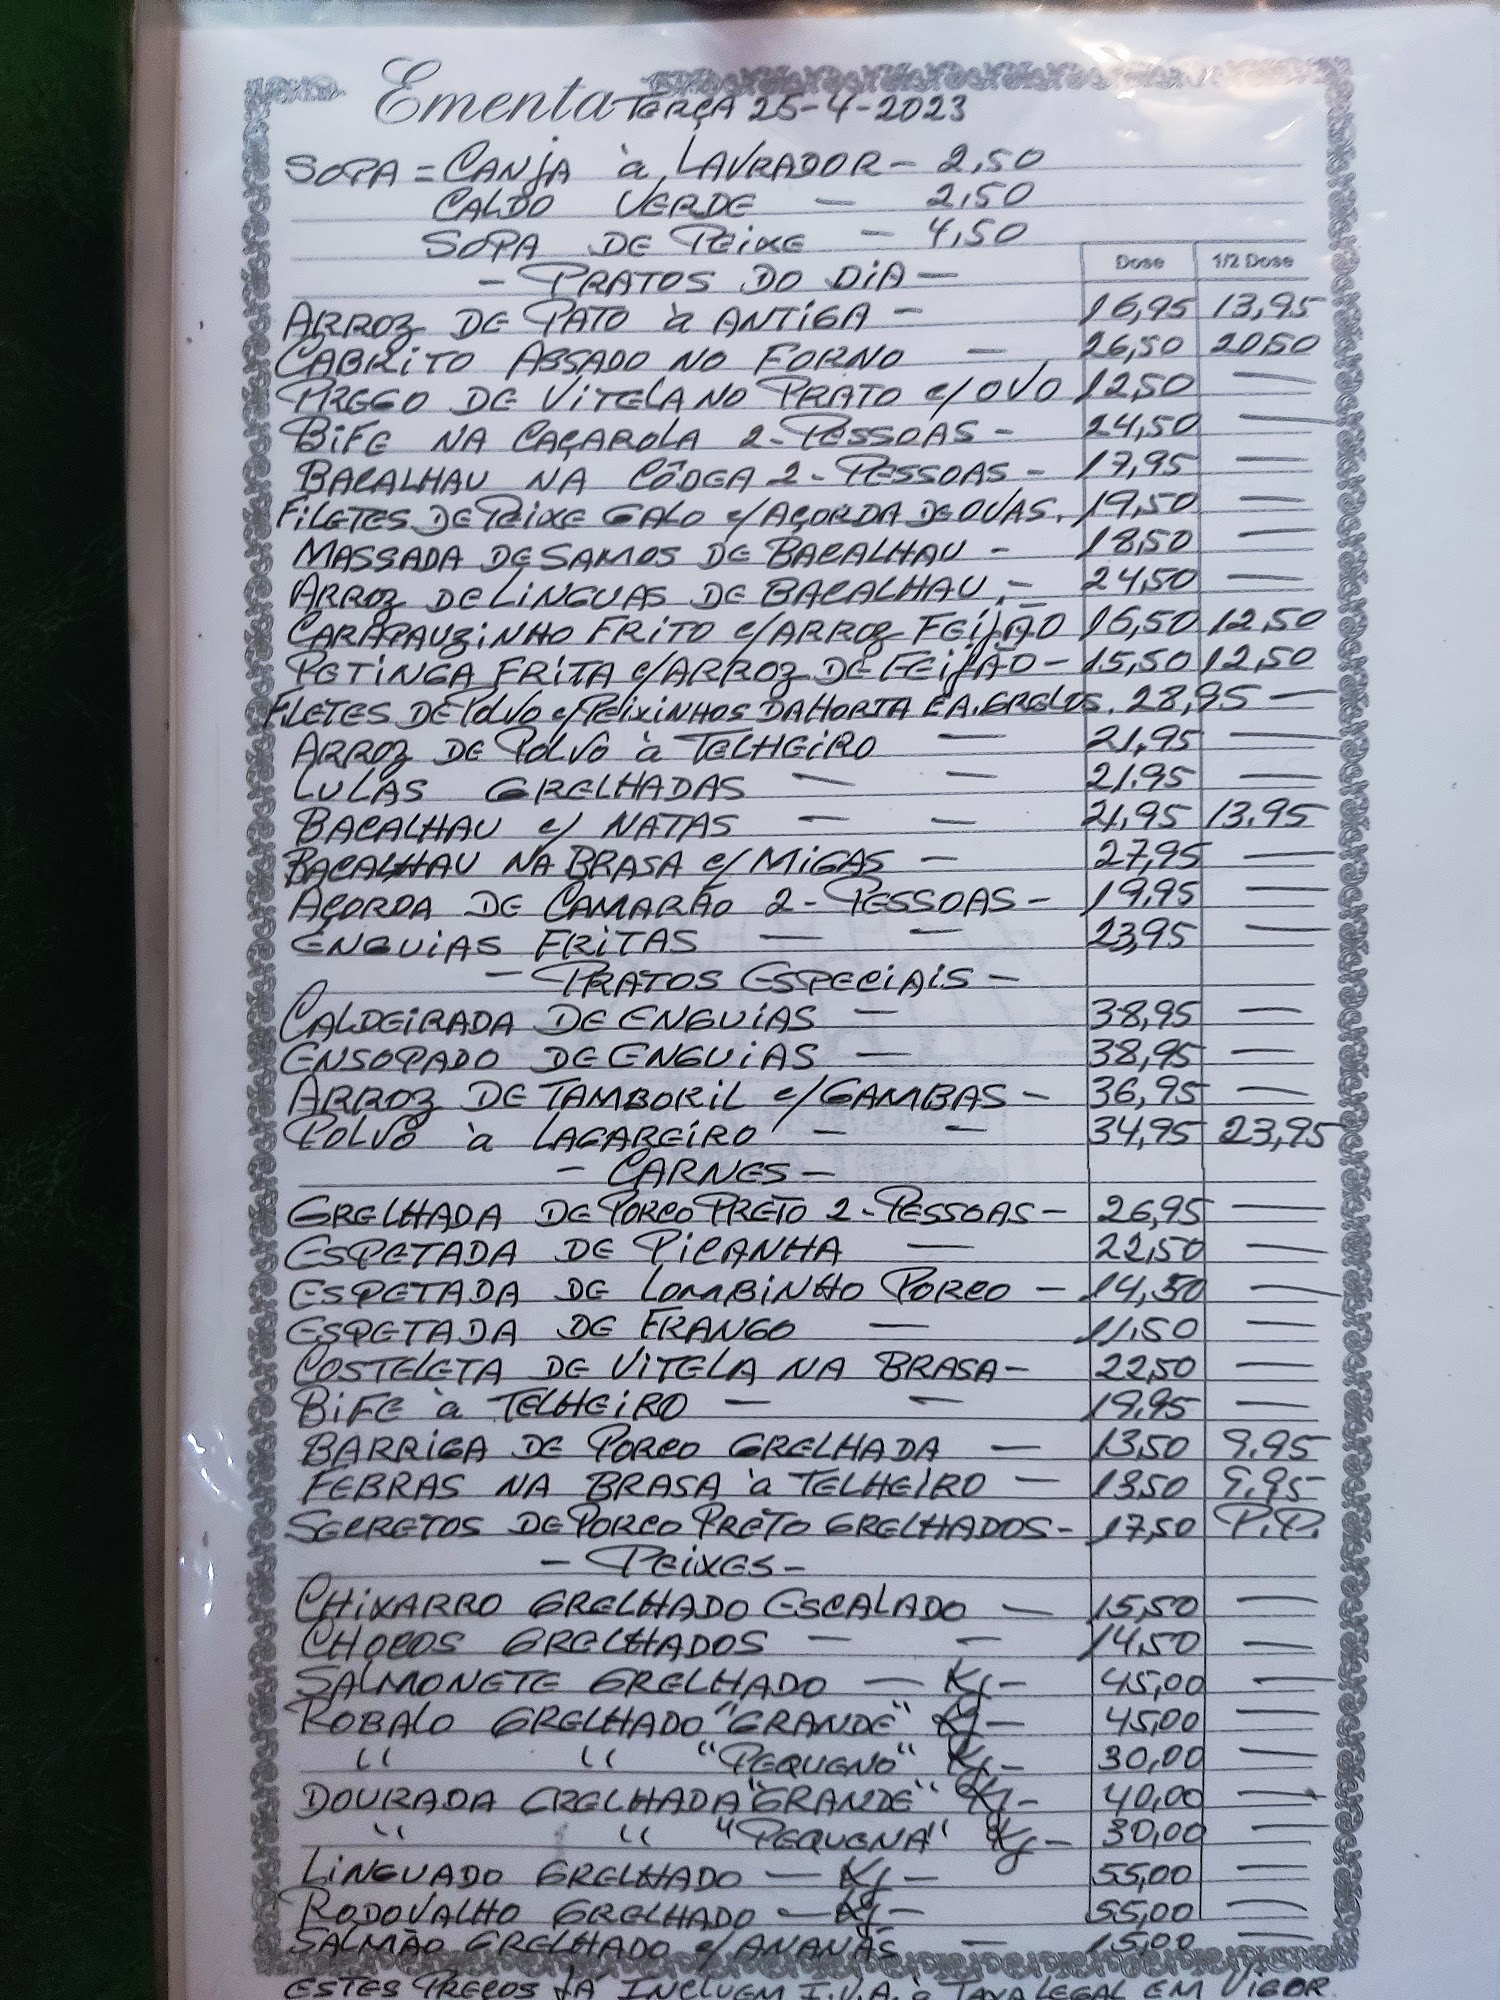 Ementa TERÇA 25-4-2023
SOPA = CANJA à LAVRADOR - 2,50
CALDO VERDE - 2,50
SOPA DE PEIXE - 4,50
Dose 1/2 Dose
- PRATOS DO DIA -
ARROZ DE PATO à ANTIGA - 16,95 13,95
CABRITO ASSADO NO FORNO - 26,50 20,50
PREGO DE VITELA NO PRATO c/OVO 12,50 -
BIFE NA CAÇAROLA 2-PESSOAS - 24,50 -
BACALHAU NA CÔDEA 2-PESSOAS - 17,95 -
FILETES DE PEIXE GALO c/AÇORDA DE OVAS. 19,50 -
MASSADA DE SAMOS DE BACALHAU - 18,50 -
ARROZ DE LINGUAS DE BACALHAU - 24,50 -
CARAPAUZINHO FRITO c/ARROZ FEIJÃO 16,50 12,50
PETINGA FRITA c/ARROZ DE FEIJÃO - 15,50 12,50
FILETES DE POLVO c/PEIXINHOS DA HORTA E A. GRELOS. 28,95 -
ARROZ DE POLVO à TELHEIRO - 21,95 -
LULAS GRELHADAS - - 21,95 -
BACALHAU c/ NATAS - - 21,95 13,95
BACALHAU NA BRASA c/MIGAS - 27,95 -
AÇORDA DE CAMARÃO 2-PESSOAS - 19,95 -
ENGUIAS FRITAS - - 23,95 -
- PRATOS ESPECIAIS -
CALDEIRADA DE ENGUIAS - 38,95 -
ENSOPADO DE ENGUIAS - 38,95 -
ARROZ DE TAMBORIL c/GAMBAS - 36,95 -
POLVO à LAGAREIRO - - 34,95 23,95
- CARNES -
GRELHADA DE PORCO PRETO 2-PESSOAS - 26,95 -
ESPETADA DE PICANHA - 22,50 -
ESPETADA DE LOMBINHO PORCO - 14,50 -
ESPETADA DE FRANGO - 11,50 -
COSTELETA DE VITELA NA BRASA - 22,50 -
BIFE à TELHEIRO - - 19,95 -
BARRIGA DE PORCO GRELHADA - 13,50 9,95
FEBRAS NA BRASA à TELHEIRO - 13,50 9,95
SECRETOS DE PORCO PRETO GRELHADOS - 17,50 P.P.
- PEIXES -
CHIXARRO GRELHADO ESCALADO - 15,50 -
CHOCOS GRELHADOS - - 14,50 -
SALMONETE GRELHADO - Kg - 45,00 -
ROBALO GRELHADO "GRANDE" Kg - 45,00 -
" " "PEQUENO" Kg - 30,00 -
DOURADA GRELHADA "GRANDE" Kg - 40,00 -
" " "PEQUENA" Kg - 30,00 -
LINGUADO GRELHADO - Kg - 55,00 -
RODOVALHO GRELHADO - Kg - 55,00 -
SALMÃO GRELHADO c/ANANÁS - 15,00 -
ESTES PREÇOS JÁ INCLUEM I.V.A. à TAXA LEGAL EM VIGOR